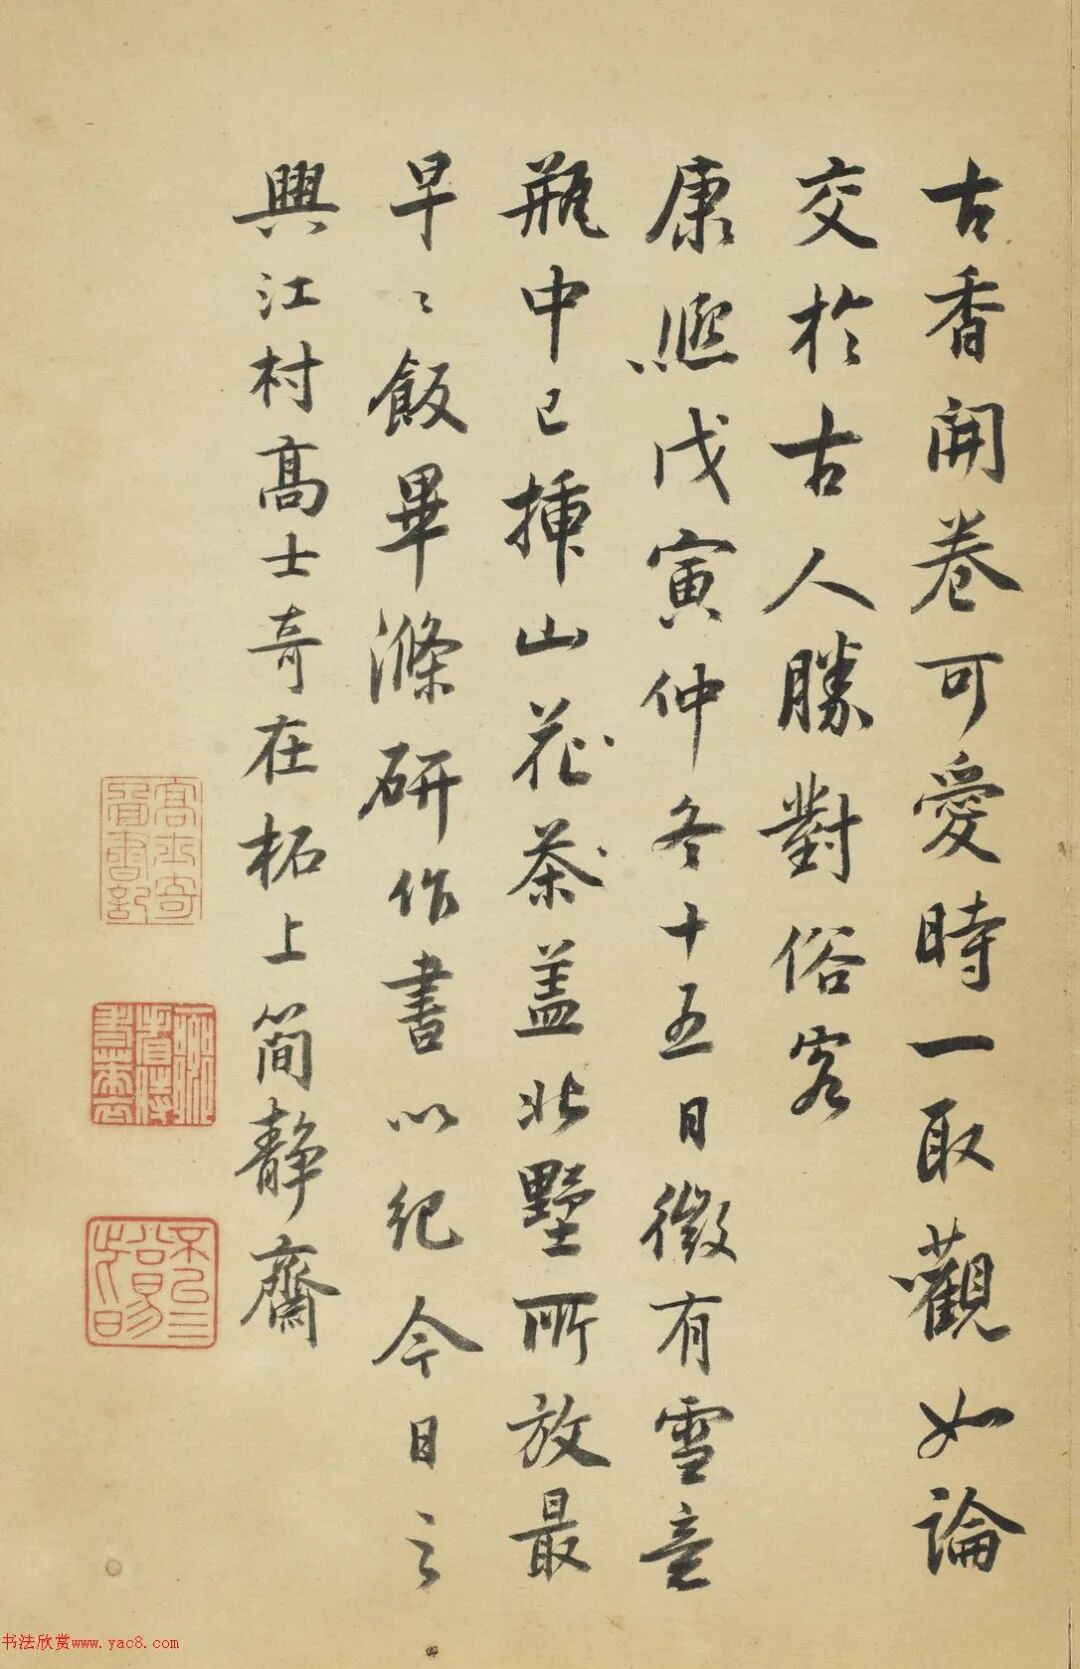 古香開卷可愛時一取觀如論
交於古人勝對俗客
康熙戊寅仲冬十五日微有雪意
瓶中已插山花茶盖北墅所放最
早〻飯畢滌研作書以紀今日之
興江村高士奇在柘上簡靜齋
高士奇
書記
不以三
公易
此日
书法欣赏www.yac8.com